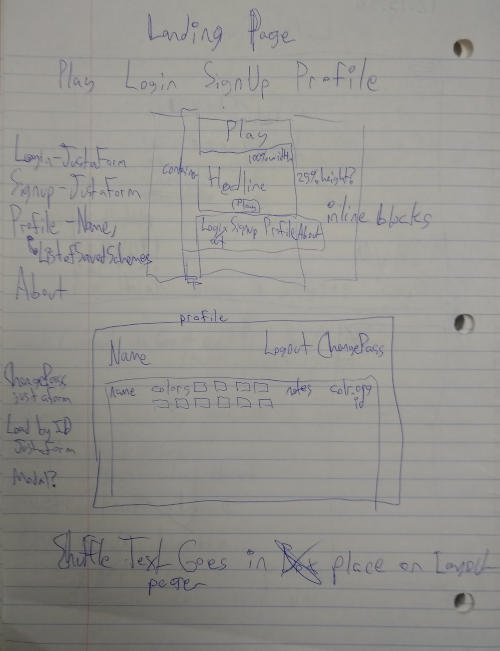 Landing Page
Play Login SignUp Profile
Play
100%width
Login-JustaForm
Signup-JustaForm
Profile-Name,
ListofSavedSchemes
About
Headline
25%height?
Play
Login Signup Profile About
inline blocks
profile
Name
Logout ChangePass
name colors notes
id
ChangePass
justaform
Load by ID
JustaForm
Modal?
Shuffle Text Goes in place on Layout
page